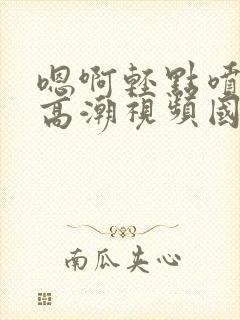 嗯啊輕點噴
高潮視頻國
南瓜夹心